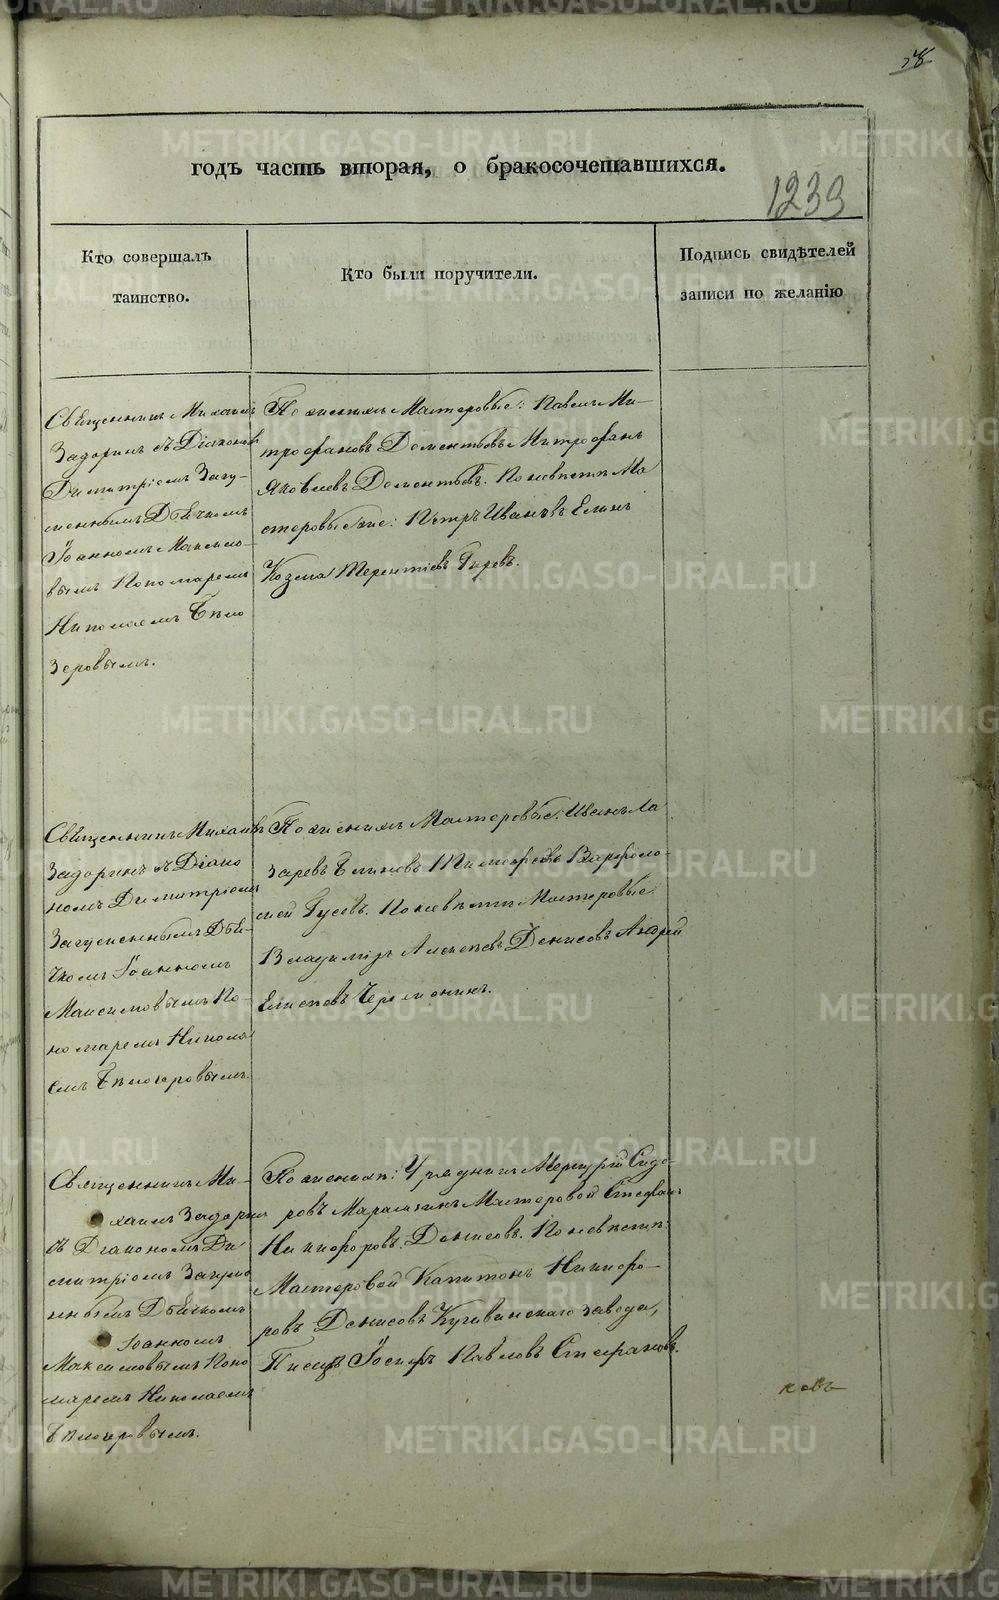 58
годъ часть вторая, о бракосочетавшихся.
1239
Кто совершалъ
таинство.
Кто были поручители.
Подпись свидѣтелей
записи по желанію
Священникъ Михаилъ
Задоринъ съ Діакономъ
Димитріемъ Загу-
меннымъ Дьячкомъ
Іоанномъ Максимо-
вымъ Пономаремъ
Николаемъ Бѣло
зеровымъ.
По женихѣ Мастеровые: Павелъ Ми-
трофановъ Дементьевъ Митрофанъ
Яковлевъ Дементьевъ. По невѣстѣ Ма
стеровые же: Петръ Ивановъ Елинъ
Козма Терентіевъ Гиревъ.
Священникъ Михаилъ
Задоринъ съ Діако
номъ Димитріемъ
Загуменнымъ Дья-
чкомъ Іоанномъ
Максимовымъ По-
номаремъ Никола
емъ Бѣлозеровымъ.
По женихѣ Мастеровые: Иванъ Ла
заревъ Варфоло-
мей Гусевъ. По невѣстѣ Мастеровые
Владиміръ Алексѣевъ Денисовъ Андрей
Елисѣевъ
Священникъ Ми-
хаилъ Задоринъ
съ Діакономъ Ди
митріемъ Загуме
ннымъ Дьячкомъ
Іоанномъ
Максимовымъ Поно
маремъ Николаемъ
Бѣлозеровымъ.
По женихѣ: Урядникъ Меркурій Сидо-
ровъ Мастеровой Стефанъ
Никифоровъ Денисовъ. По невѣстѣ
Мастеровой Капитонъ Никифо-
ровъ Денисовъ Кушвинскаго завода,
Писецъ Іосифъ Павловъ Стефановъ.
ковъ
METRIKI.GASO-URAL.RU